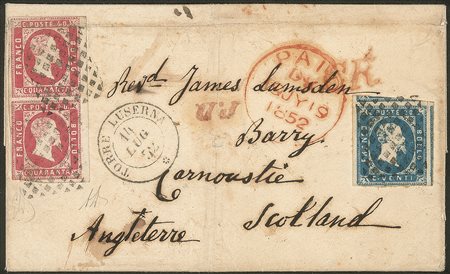 C. POSTE 40
FRANCO
BOLLO
C. QUARANTA
C. POSTE 40
FRANCO
BOLLO
C. QUARANTA
PAID
JY 19
1852
P.D.
Revd James Lumsden
TORRE LUSERNA
14
LUG
52
Barry
Carnoustie
Angleterre
Scotland
C. POSTE 20
FRANCO
BOLLO
C. VENTI